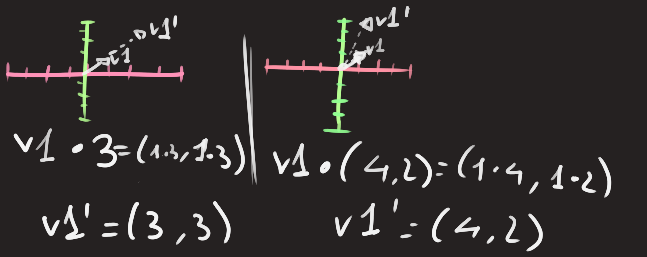 v1'
v1
v1 · 3 = (1·3, 1·3)
v1' = (3, 3)
v1'
v1
v1 · (4, 2) = (1·4, 1·2)
v1' = (4, 2)